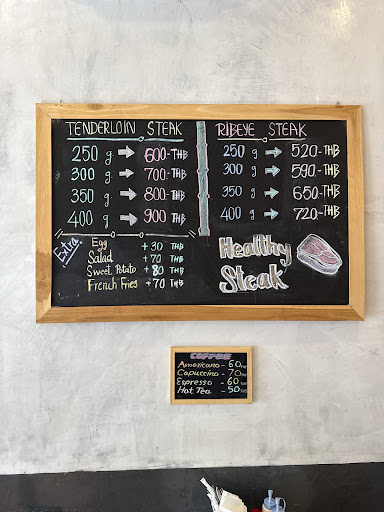 TENDERLOIN STEAK
250 g → 600.-THB
300 g → 700-THB
350 g → 800-THB
400 g → 900 THB
RIBEYE STEAK
250 g → 520.-THB
300 g → 590-THB
350 g → 650.-THB
400 g → 720.-THB
Extra
Egg +30 THB
Salad +70 THB
Sweet Potato +80 THB
French Fries +70 THB
Healthy
Steak
COFFEE
Americano - 60
Capuccino - 70
Espresso - 60
Hot Tea - 50